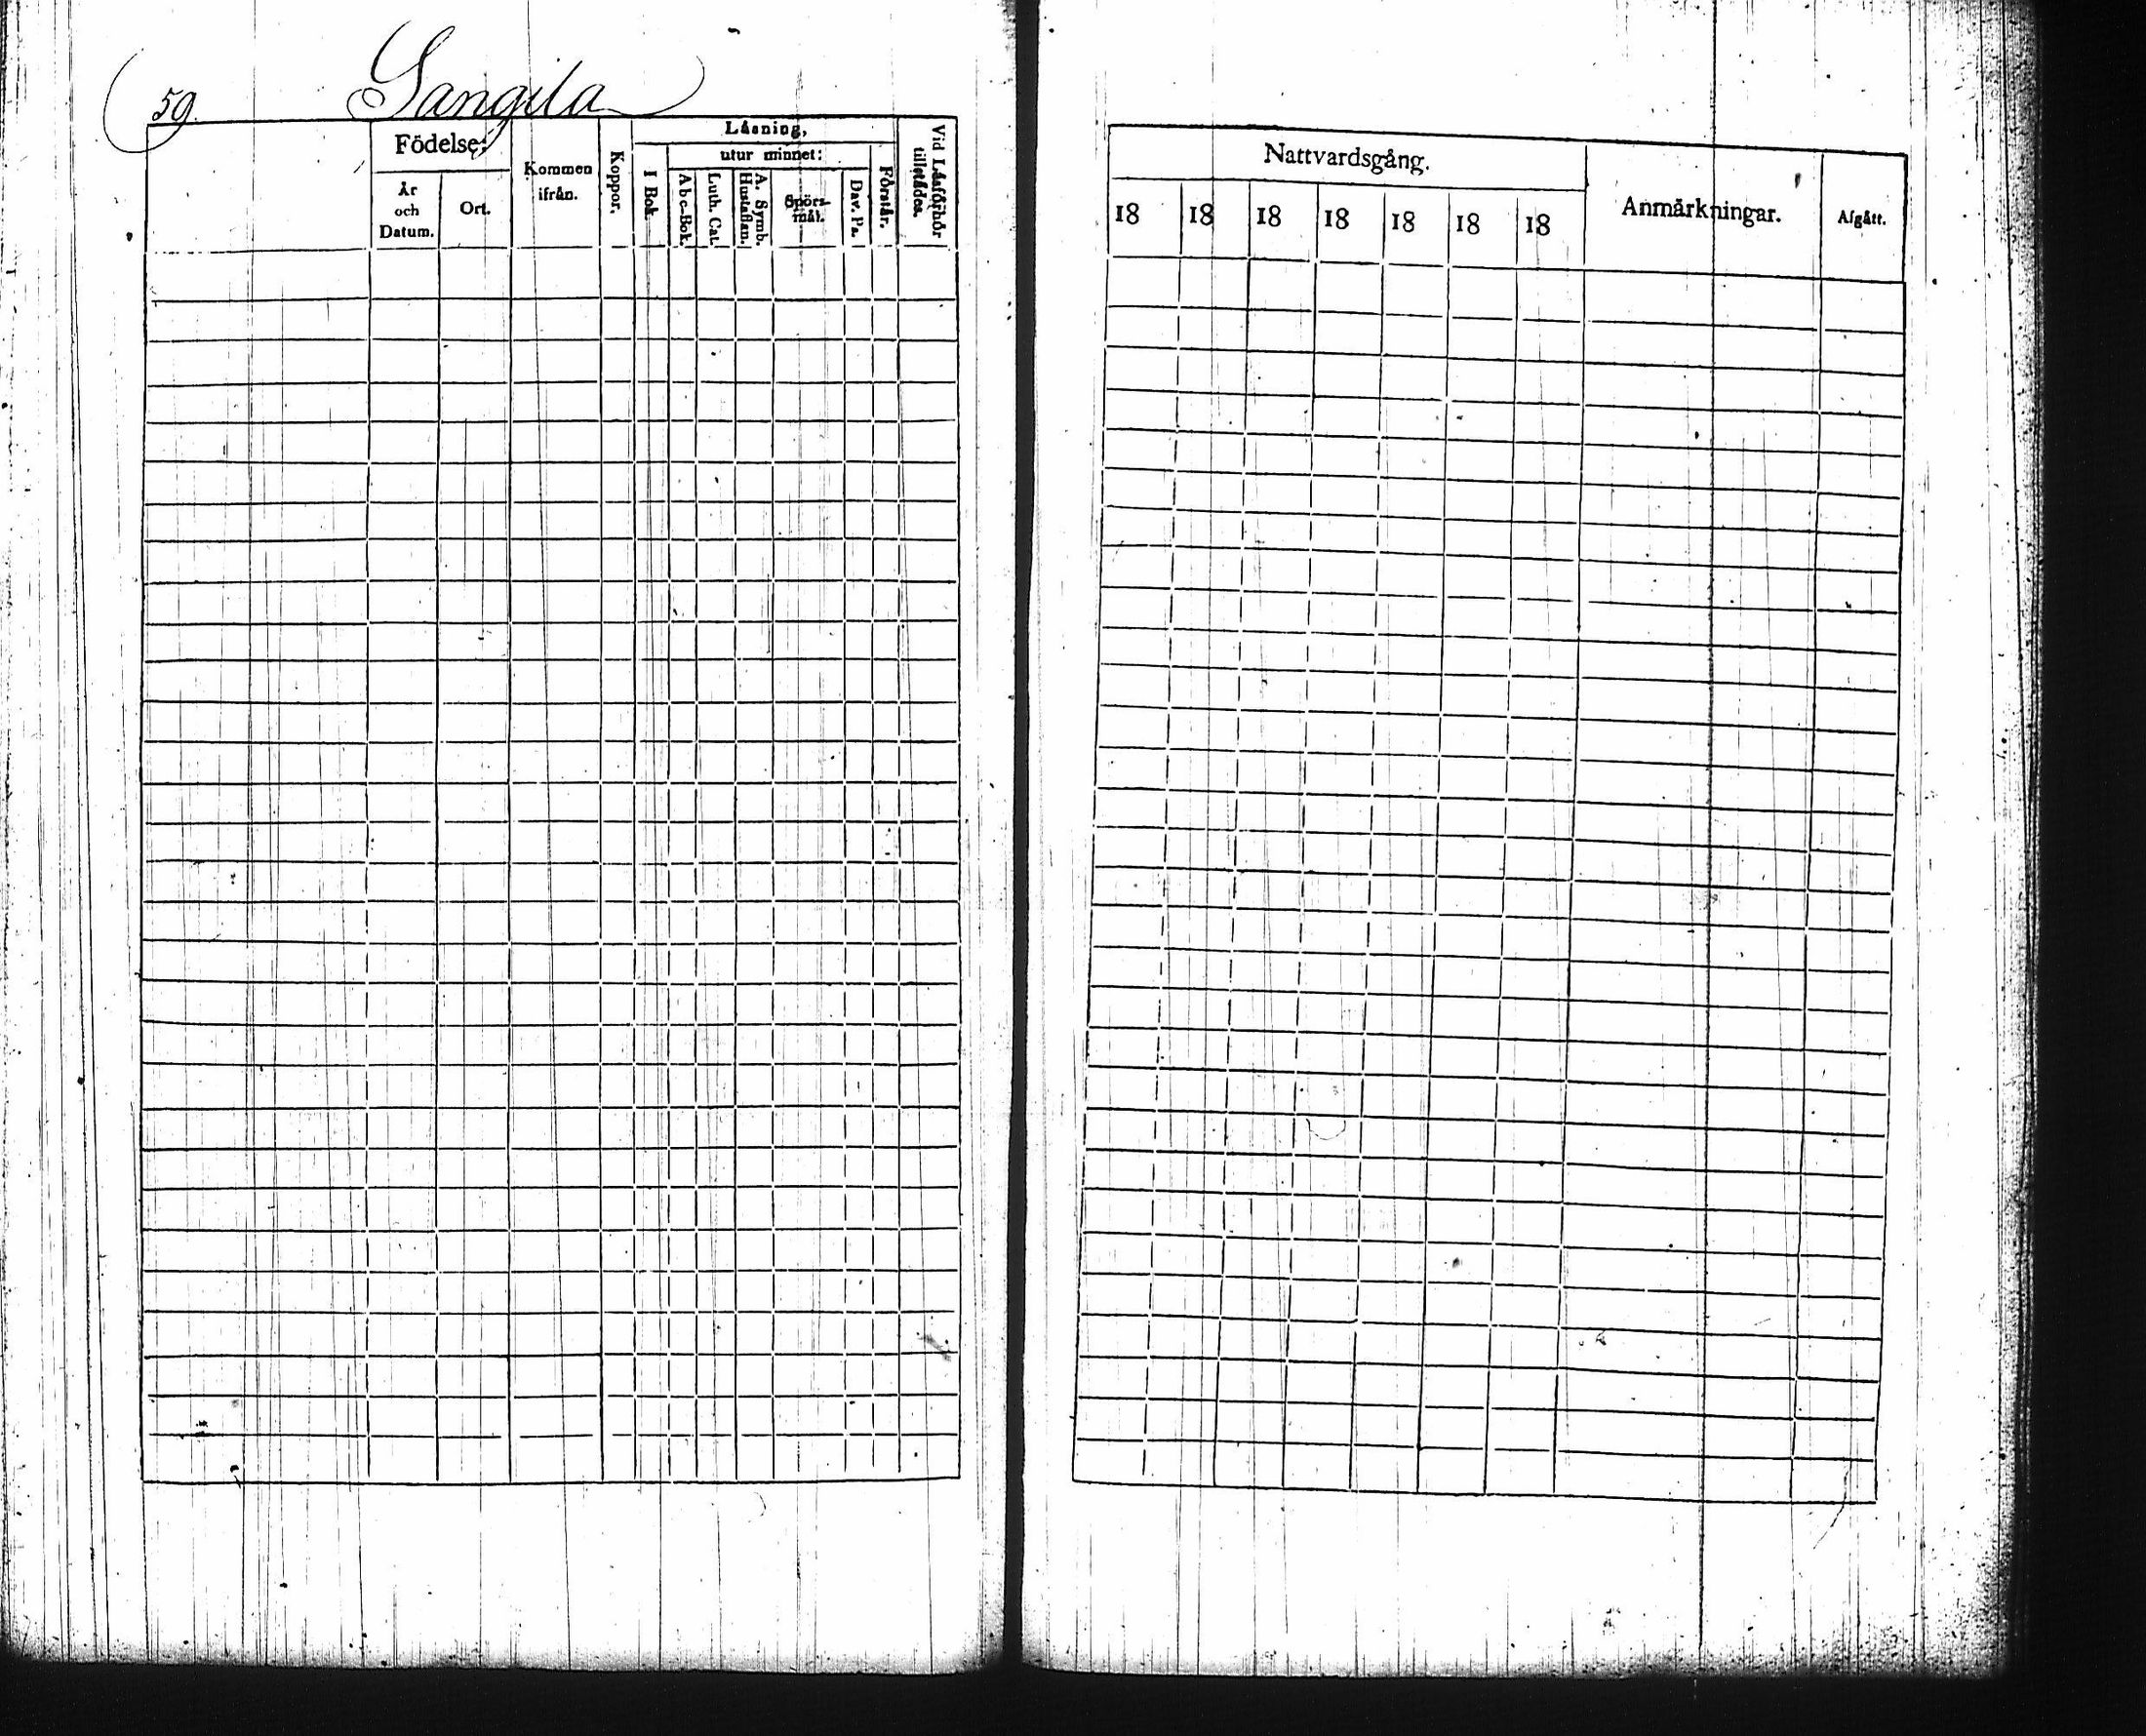 59. Sangila
Födelse:
År
och
Datum.
Ort.
Kommen
ifrån.
Koppor.
Läsning,
utur minnet:
I Bok.
Abc-Bok.
Luth. Cat.
A. Symb.
Hustaflan.
Spörs-
mål.
Dav. Ps.
Förstår.
Vid Läsförhör
tillstädes.
Nattvardsgång.
18 18 18 18 18 18 18
Anmärkningar.
Afgått.